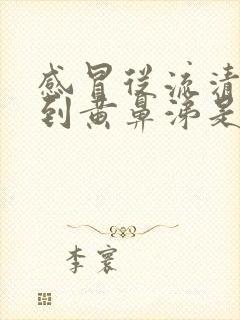 感冒从流清
到黄鼻涕是
李寰